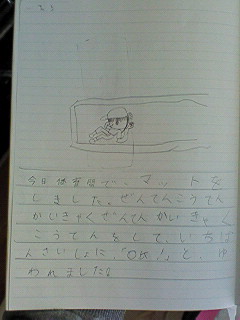 今日体育館で、マットを
しました。ぜんてんこうてん
かいきゃくぜんてん かいきゃく
こうてんをして、いちば
んさいしょに、「OK！」と、ゆ
われました。